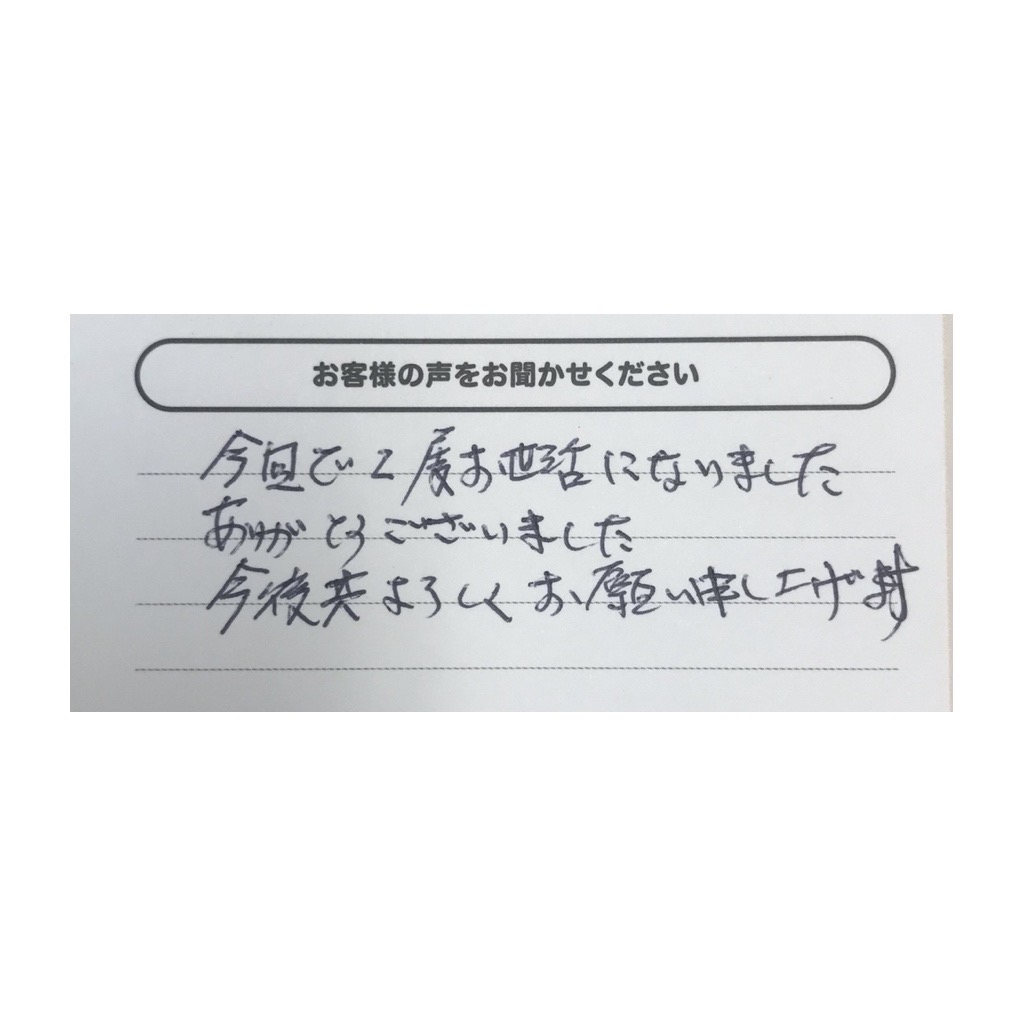 お客様の声をお聞かせください
今回で2度お世話になりました
ありがとうございました
今後共よろしくお願い申し上げます